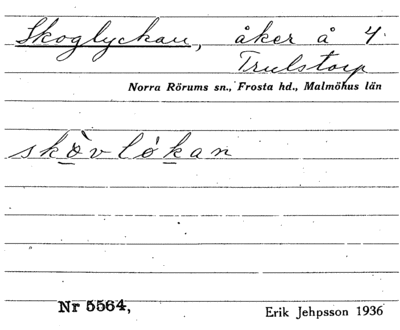 Skoglyckan, åker å 4
Trulstorp
Norra Rörums sn., Frosta hd., Malmöhus län
skòvlókan
Nr 5564,
Erik Jehpsson 1936